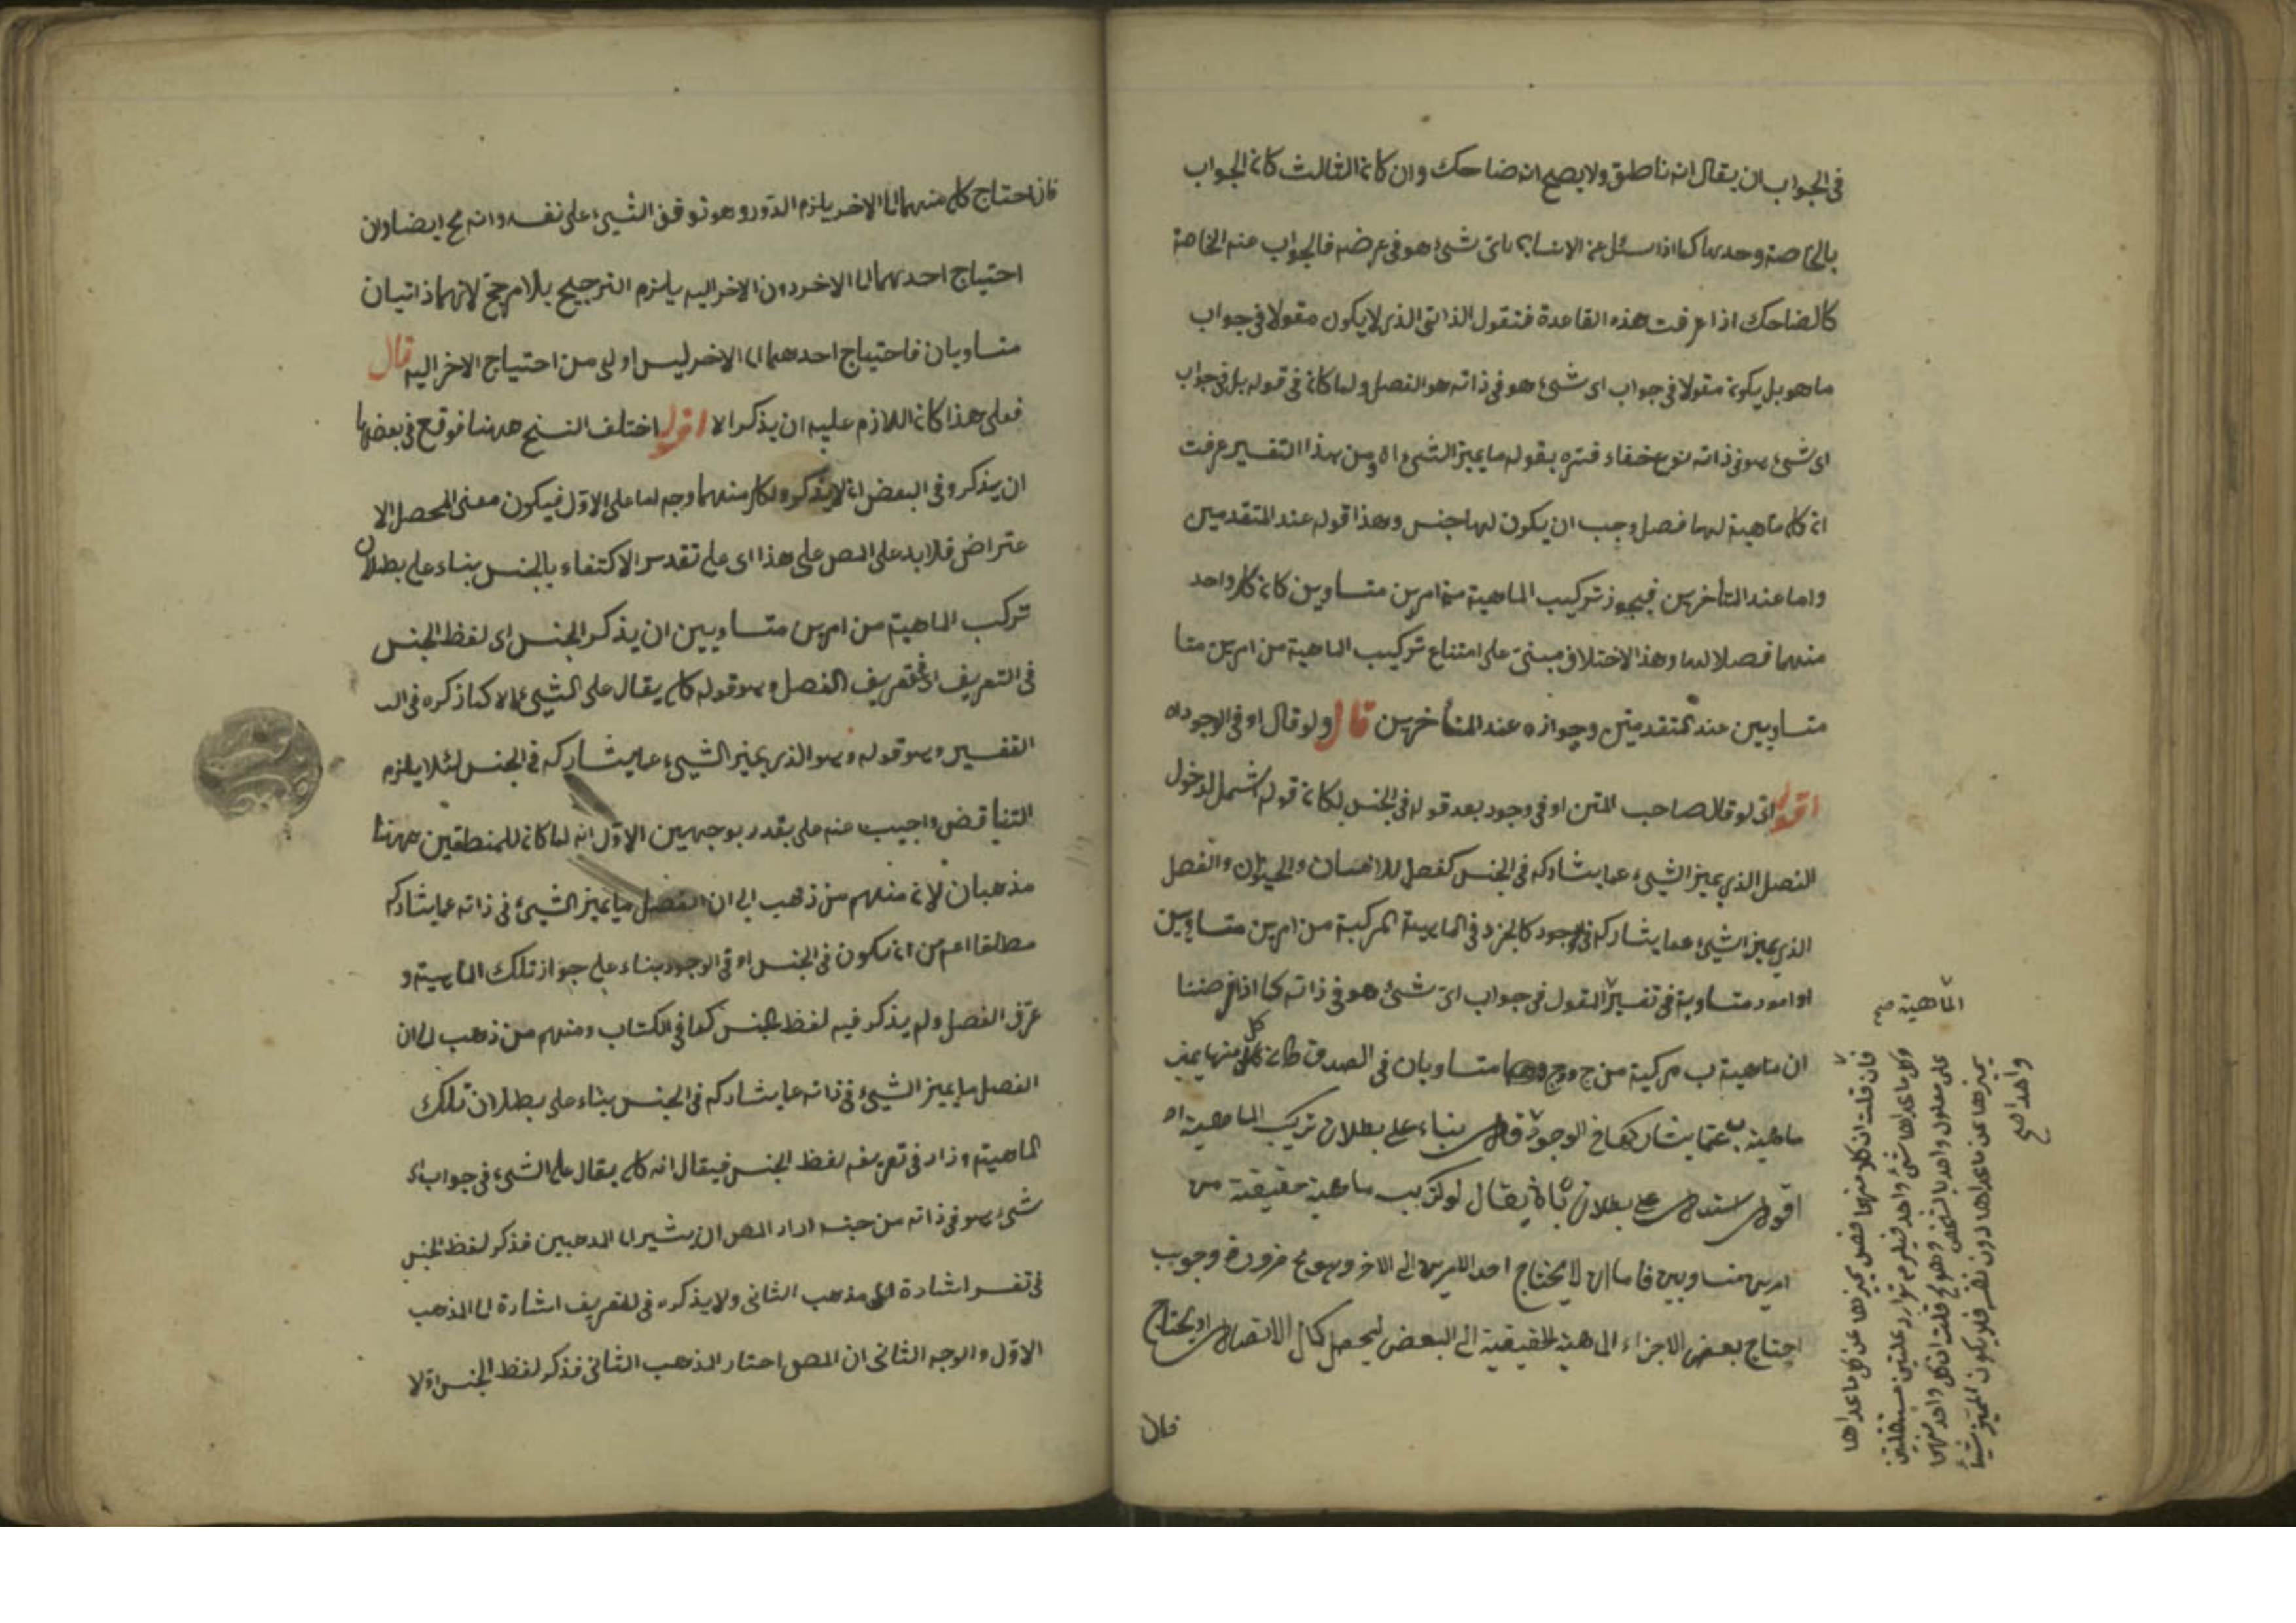 في الجواب ان يقال انه ناطق ولا يصح انه ضاحك وان كان الثالث كان الجواب
بالخاصة وحدها كما اذا سئل عن الانسان باى شئ هو في عرضه فالجواب عنه الخاصة
كالضاحك اذا عرفت هذه القاعدة فنقول الذاتى الذى لا يكون مقولا في جواب
ما هو بل يكون مقولا في جواب اى شئ هو في ذاته هو الفصل ولما كان في قوله بل في جواب
اى شئ هو في ذاته نوع خفاء فسره بقوله ما يميز الشئ اه ومن هذا التفسير عرفت
ان كل ماهية لها فصل وجب ان يكون لها جنس وهذا قوله عند المتقدمين
واما عند المتأخرين فيجوز تركيب الماهية من امرين متساوين كان كل واحد
منهما فصلا لها وهذا الاختلاف مبنى على امتناع تركيب الماهية من امرين متسا
متساويين عند المتقدمين وجوازه عند المتأخرين قال ولو قال او في الوجود اه
اقول اى لو قال صاحب المتن او في وجود بعد قوله في الجنس لكان قوله اشمل لدخول
الفصل الذى يميز الشئ عما يشاركه في الجنس كفصل للانسان والحيوان والفصل
الذى يميز الشئ عما يشاركه في الوجود كالجزء في الماهية المركبة من امرين متساويين
او امور متساوية في تفسير المقول في جواب اى شئ هو في ذاته كما اذا فرضنا
ان ماهية ب مركبة من ج و متساويان في الصدق كان كل منها يميز
ماهية ب عما يشاركها في الوجود قال بناء على بطلان تركيب الماهية اه
اقول استدل على بطلان بان يقال لو تركيب ماهية حقيقية من
امرين متساويين فاما ان لا يحتاج احد الامرين الى الاخر وهو مح ضرورة وجوب
احتياج بعض الاجزاء الماهية الحقيقية الى البعض ليحصل كمال الاتصال او يحتاج
فان
الماهية صح
فان قلت ان كلا منهما فصل يميزها عن كل ما عداها
وكل ما عداها شئ واحد فيلزم توارد علتين مستقلتين
على معلول واحد بالشخص وهو مح قلت ان كل واحد منهما
يميزها عن ما عداها دون نفسه فلا يكون المميز شيئا
واحدا صح
فان احتاج كل منهما الى الاخر يلزم الدور وهو توقف الشئ على نفسه وانه مح ايضا وان
احتياج احدهما الى الاخر دون الاخر اليه يلزم الترجيح بلا مرجح لانهما ذاتيان
متساويان فاحتياج احدهما الى الاخر ليس اولى من احتياج الاخر اليه قال
فعلى هذا كان اللازم عليه ان يذكر الا اقول اختلف النسخ ههنا فوقع في بعضها
ان يذكر وفي البعض ان لا يذكر ولكل منهما وجه اما على الاول فيكون معنى المحصل الا
عتراض فلا بد على المص على هذا اى على تقدير الاكتفاء بالجنس بناء على بطلان
تركب الماهية من امرين متساويين ان يذكر الجنس اى لفظ الجنس
في التعريف اى في تعريف الفصل وهو قوله كلى يقال على الشئ الا كما ذكره في الـ
التفسير وهو قوله وهو الذى يميز الشئ عما يشاركه في الجنس لئلا يلزم
التناقض واجيب عنه على بقدر بوجهين الاول انه لما كان للمنطقين ههنا
مذهبان لان منهم من ذهب الى ان الفصل ما يميز الشئ في ذاته عما يشاركه
مطلقا اعم من ان يكون في الجنس او في الوجود بناء على جواز تلك الماهية و
عرف الفصل ولم يذكر فيه لفظ الجنس كما في الكتاب ومنهم من ذهب الى ان
الفصل ما يميز الشئ في ذاته عما يشاركه في الجنس بناء على بطلان تلك
الماهية وزاد في تعريفه لفظ الجنس فيقال انه كلى يقال على الشئ في جواب اى
شئ هو في ذاته من جنسه اراد المص ان يشير الى المذهبين فذكر لفظ الجنس
في تفسير اشارة الى مذهب الثانى ولا يذكره في التعريف اشارة الى المذهب
الاول والوجه الثانى ان المص اختار المذهب الثانى فذكر لفظ الجنس اولا